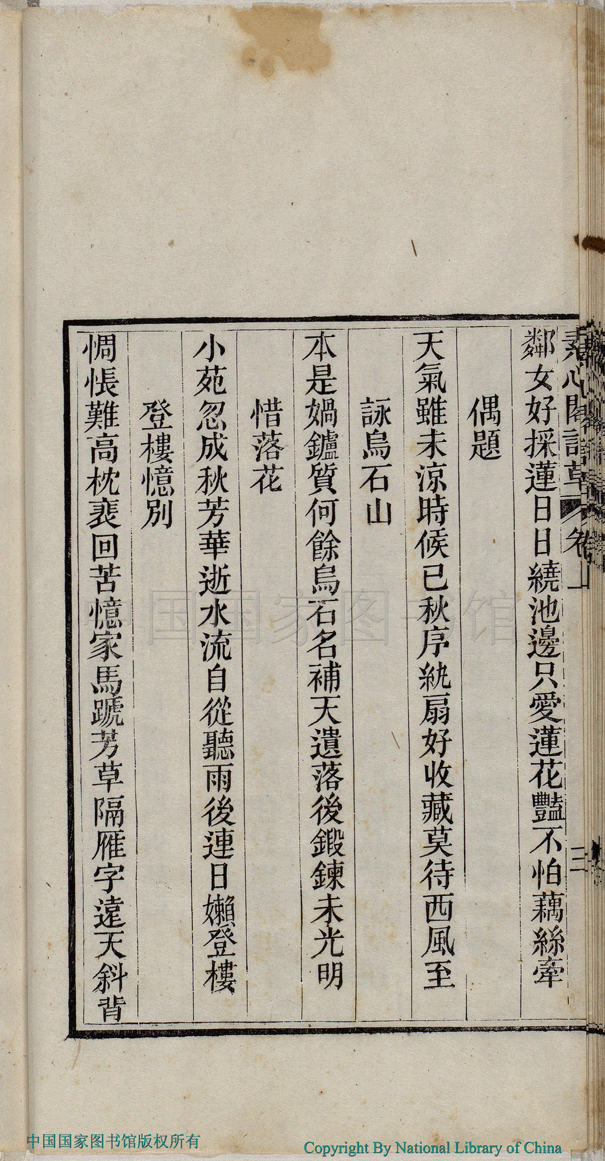 素心閣詩草 卷上 三
鄰女好採蓮日日繞池邊只愛蓮花豔不怕藕絲牽
偶題
天氣雖未涼時候已秋序紈扇好收藏莫待西風至
詠烏石山
本是媧鑪質何餘烏石名補天遺落後鍛鍊未光明
惜落花
小苑忽成秋芳華逝水流自從聽雨後連日嬾登樓
登樓憶別
惆悵難高枕裵回苦憶家馬蹏芳草隔雁字遠天斜背
中国国家图书馆
中国国家图书馆版权所有
Copyright By National Library of China